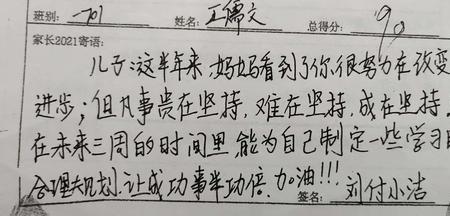 班别: 701 姓名: 王儒文 总得分: 90
家长2021寄语:
儿子:这半年来,妈妈看到了你很努力在改变
进步;但凡事贵在坚持,难在坚持,成在坚持。
在未来三周的时间里,能为自己制定一些学习
合理规划,让成功事半功倍,加油!!!
签名: 刘付小洁